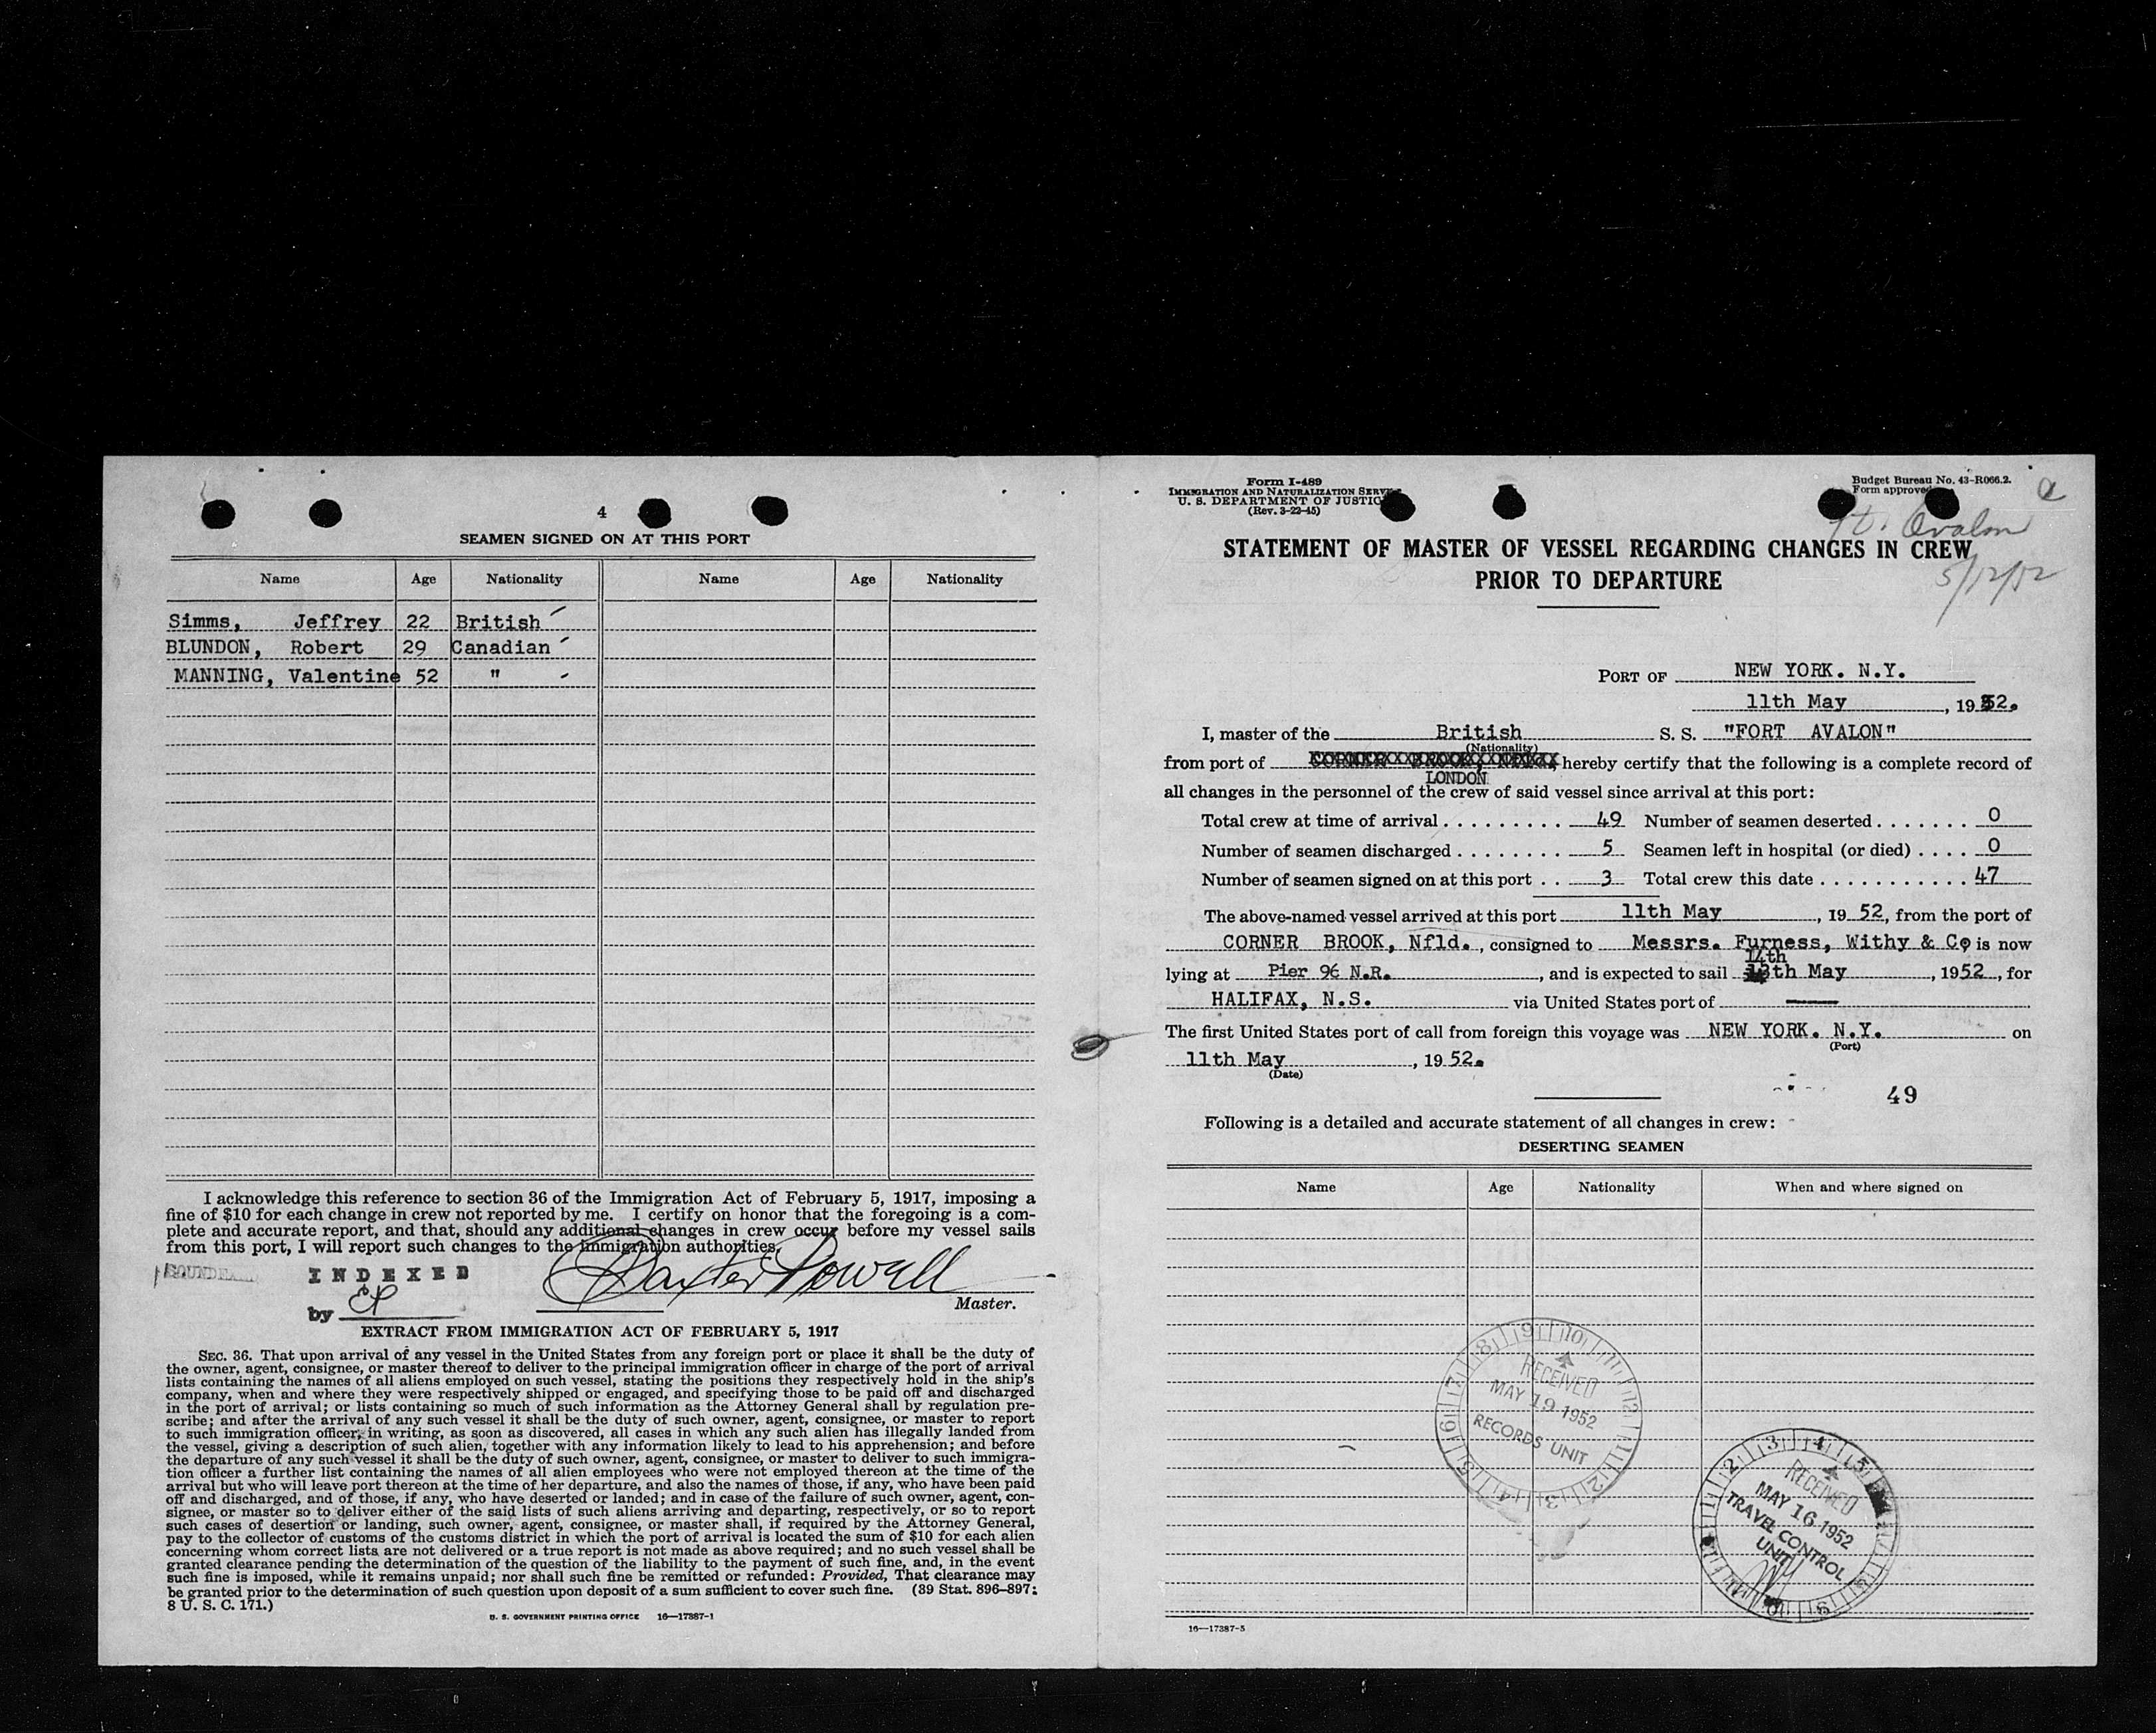 4
SEAMEN SIGNED ON AT THIS PORT
Name Age Nationality Name Age Nationality
Simms, Jeffrey 22 British
BLUNDON, Robert 29 Canadian
MANNING, Valentine 52 "
I acknowledge this reference to section 36 of the Immigration Act of February 5, 1917, imposing a
fine of $10 for each change in crew not reported by me. I certify on honor that the foregoing is a com-
plete and accurate report, and that, should any additional changes in crew occur before my vessel sails
from this port, I will report such changes to the immigration authorities.
INDEXED
by
Baxter Powell
Master.
EXTRACT FROM IMMIGRATION ACT OF FEBRUARY 5, 1917
SEC. 36. That upon arrival of any vessel in the United States from any foreign port or place it shall be the duty of
the owner, agent, consignee, or master thereof to deliver to the principal immigration officer in charge of the port of arrival
lists containing the names of all aliens employed on such vessel, stating the positions they respectively hold in the ship's
company, when and where they were respectively shipped or engaged, and specifying those to be paid off and discharged
in the port of arrival; or lists containing so much of such information as the Attorney General shall by regulation pre-
scribe; and after the arrival of any such vessel it shall be the duty of such owner, agent, consignee, or master to report
to such immigration officer, in writing, as soon as discovered, all cases in which any such alien has illegally landed from
the vessel, giving a description of such alien, together with any information likely to lead to his apprehension; and before
the departure of any such vessel it shall be the duty of such owner, agent, consignee, or master to deliver to such immigra-
tion officer a further list containing the names of all alien employees who were not employed thereon at the time of the
arrival but who will leave port thereon at the time of her departure, and also the names of those, if any, who have been paid
off and discharged, and of those, if any, who have deserted or landed; and in case of the failure of such owner, agent, con-
signee, or master so to deliver either of the said lists of such aliens arriving and departing, respectively, or so to report
such cases of desertion or landing, such owner, agent, consignee, or master shall, if required by the Attorney General,
pay to the collector of customs of the customs district in which the port of arrival is located the sum of $10 for each alien
concerning whom correct lists are not delivered or a true report is not made as above required; and no such vessel shall be
granted clearance pending the determination of the question of the liability to the payment of such fine, and, in the event
such fine is imposed, while it remains unpaid; nor shall such fine be remitted or refunded: Provided, That clearance may
be granted prior to the determination of such question upon deposit of a sum sufficient to cover such fine. (39 Stat. 896–897;
8 U. S. C. 171.)
U. S. GOVERNMENT PRINTING OFFICE 16—17387-1
Form I-489
IMMIGRATION AND NATURALIZATION SERVICE
U. S. DEPARTMENT OF JUSTICE
(Rev. 3-22-45)
Budget Bureau No. 43-R066.2.
Form approved
Ft. Avalon
5/12/52
STATEMENT OF MASTER OF VESSEL REGARDING CHANGES IN CREW
PRIOR TO DEPARTURE
PORT OF NEW YORK. N.Y.
11th May, 1952.
I, master of the British S. S. "FORT AVALON"
(Nationality)
from port of hereby certify that the following is a complete record of
LONDON
all changes in the personnel of the crew of said vessel since arrival at this port:
Total crew at time of arrival . . . . . . . . . . 49 Number of seamen deserted . . . . . . . 0
Number of seamen discharged . . . . . . . . 5 Seamen left in hospital (or died) . . . . 0
Number of seamen signed on at this port . . 3 Total crew this date . . . . . . . . . . . 47
The above-named vessel arrived at this port 11th May, 19 52, from the port of
CORNER BROOK, Nfld., consigned to Messrs. Furness, Withy & Co is now
14th
lying at Pier 96 N.R., and is expected to sail 13th May, 1952, for
HALIFAX, N.S. via United States port of ——
The first United States port of call from foreign this voyage was NEW YORK. N.Y. on
(Port)
11th May, 19 52.
(Date)
49
Following is a detailed and accurate statement of all changes in crew:
DESERTING SEAMEN
Name Age Nationality When and where signed on
RECEIVED
MAY 19 1952
RECORDS UNIT
RECEIVED
MAY 16 1952
TRAVEL CONTROL
UNIT
16—17387-5